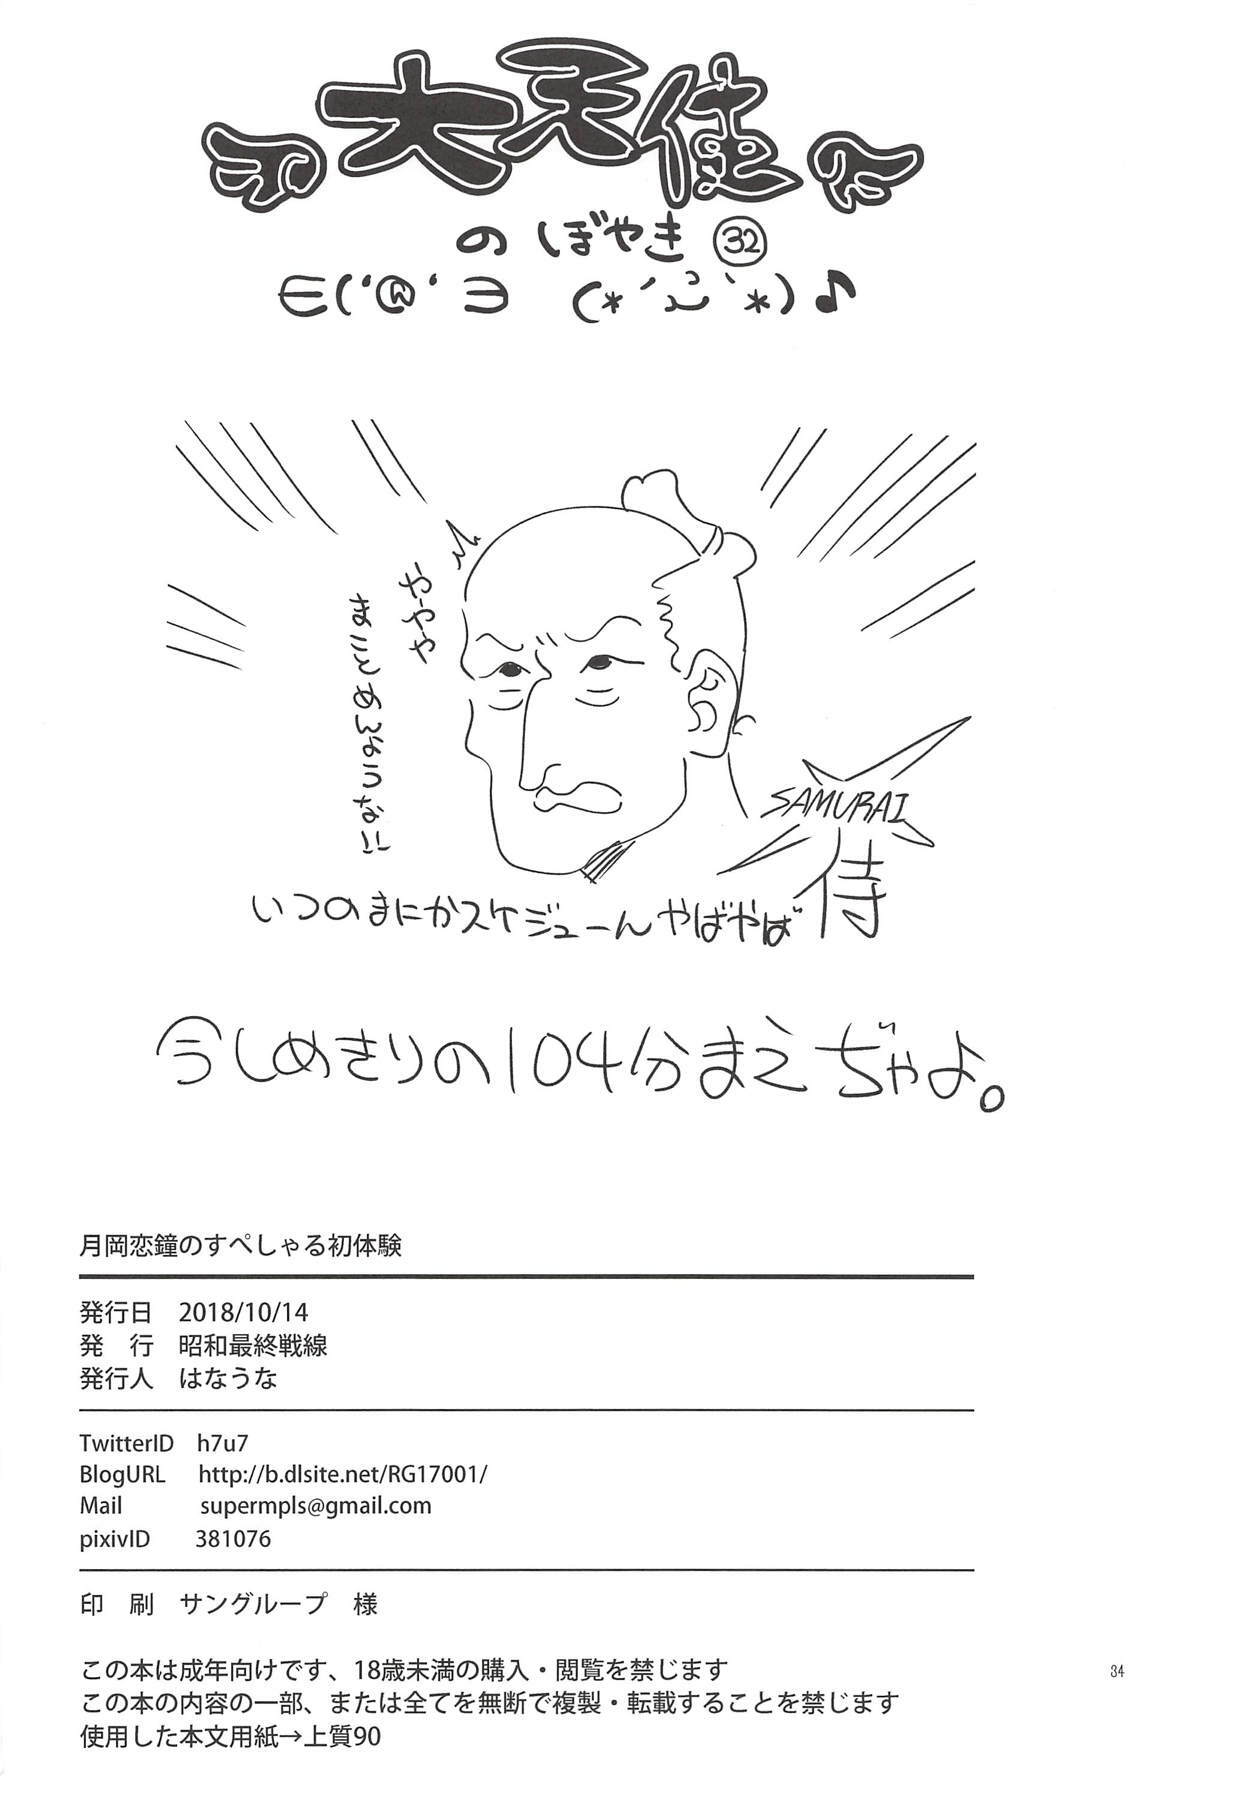 大天使
のぼやき㉜
∈('@' ∋ (*´ `*)♪
ややや
まことめんような!!
SAMURAI
侍
いつのまにかスケジューんやばやば
今しめきりの104分まえぢゃよ。
月岡恋鐘のすぺしゃる初体験
発行日 2018/10/14
発　行 昭和最終戦線
発行人 はなうな
TwitterID h7u7
BlogURL http://b.dlsite.net/RG17001/
Mail supermpls@gmail.com
pixivID 381076
印　刷 サングループ　様
この本は成年向けです、18歳未満の購入・閲覧を禁じます
この本の内容の一部、または全てを無断で複製・転載することを禁じます
使用した本文用紙→上質90
34